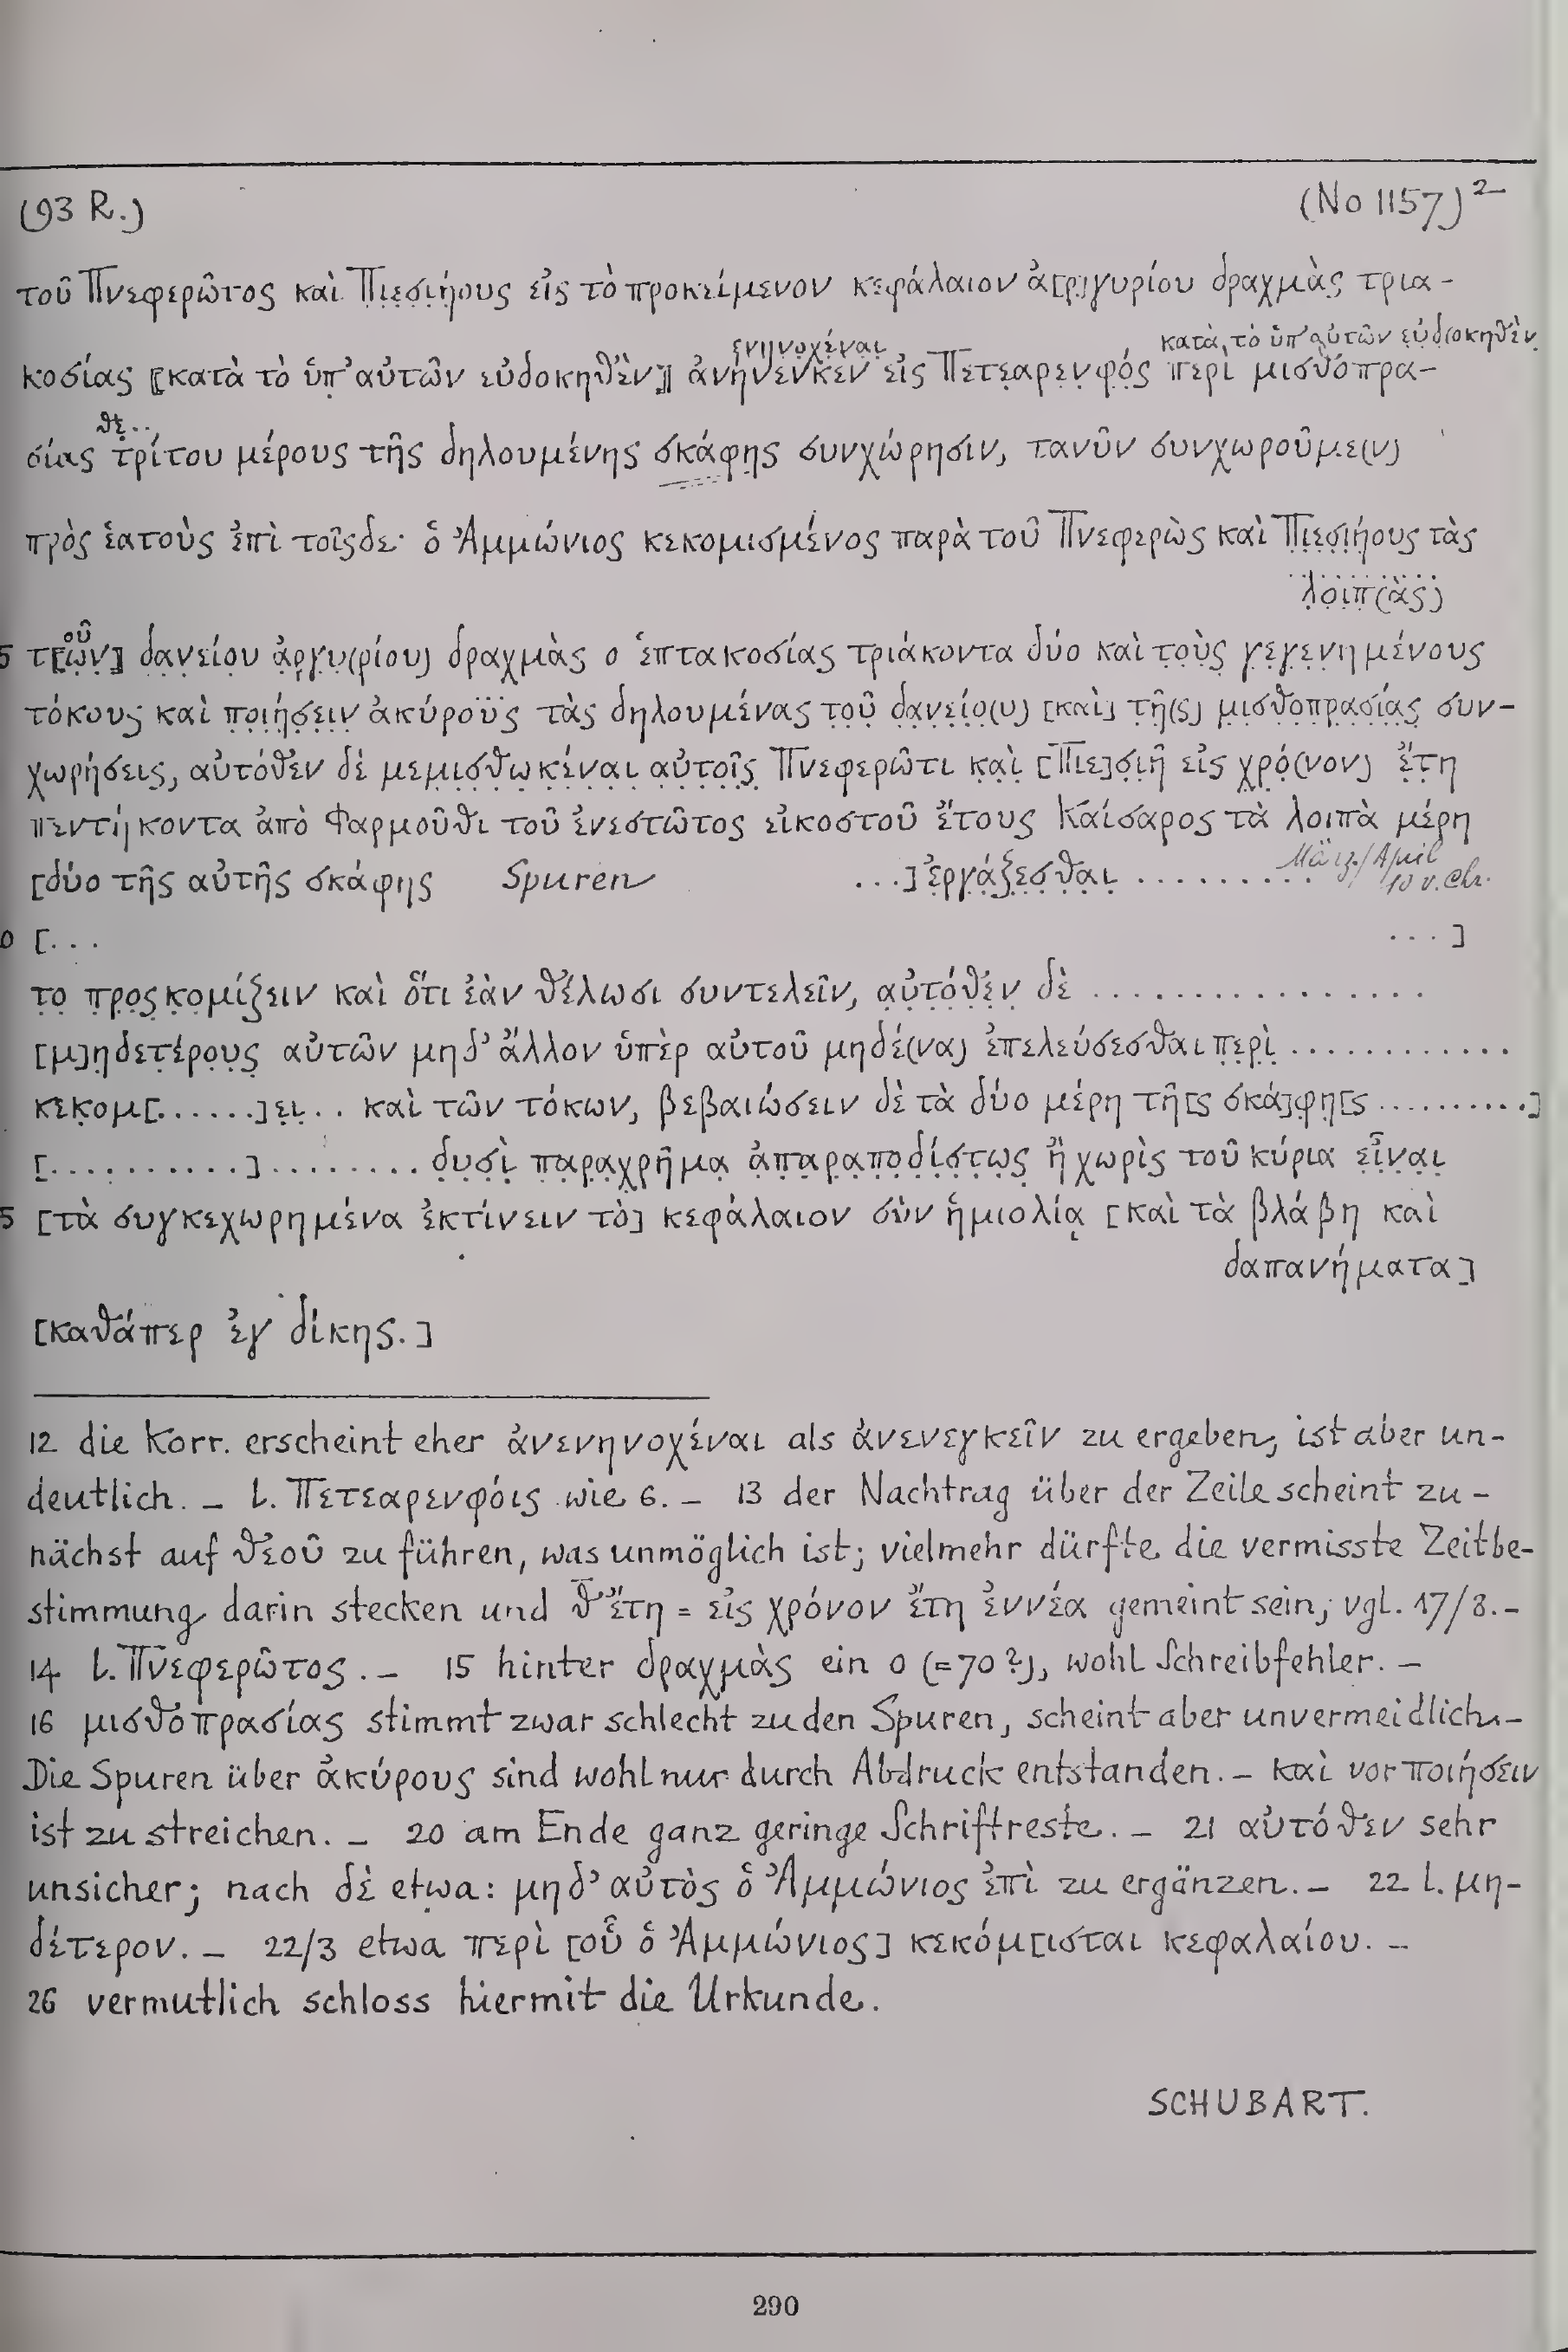 (93 R.) (No 1157)²⁻
τοῦ Πνεφερῶτος καὶ Π̣ι̣ε̣σ̣ι̣ή̣ους εἰς τὸ προκείμενον κεφάλαιον ἀ[ρ]γυρίου δραχμὰς τρια-
ενηνοχέναι κατὰ τὸ ὑπ' αὐτῶν εὐδοκηθὲν
κοσίας ⟦κατὰ τὸ ὑπ' αὐτῶν εὐδοκηθὲν⟧ ἀνήνενκεν εἰς Πετεαρενφός περὶ μισθοπρα-
θε̣..
σίας τρίτου μέρους τῆς δηλουμένης σκάφης συνχώρησιν, τανῦν συνχωροῦμε(ν)
πρὸς ἑατοὺς ἐπὶ τοῖςδε· ὁ Ἀμμώνιος κεκομισμένος παρὰ τοῦ Πνεφερὼς καὶ Πιεσιήους τὰς
λοιπ(ὰς)
οῦ
5 τ⟦ῶν⟧ δανείου ἀργυ(ρίου) δραχμὰς ο ἑπτακοσίας τριάκοντα δύο καὶ τοὺς γεγενημένους
τόκους καὶ ποιήσειν ἀκύρους τὰς δηλουμένας τοῦ δανείο(υ) [καὶ] τῆ(ς) μισθοπρασίας συν-
χωρήσεις, αὐτόθεν δὲ μεμισθωκέναι αὐτοῖς Πνεφερῶτι καὶ [Πιε]σιῆ εἰς χρό(νον) ἔτη
πεντήκοντα ἀπὸ Φαρμοῦθι τοῦ ἐνεστῶτος εἰκοστοῦ ἔτους Καίσαρος τὰ λοιπὰ μέρη
[δύο τῆς αὐτῆς σκάφης Spuren ...] ἐργάξεσθαι .......... März/April
10 v. Chr.
0 [... ...]
το προςκομίξειν καὶ ὅτι ἐὰν θέλωσι συντελεῖν, αὐτόθεν δὲ .................
[μ]ηδετέρους αὐτῶν μηδ' ἄλλον ὑπὲρ αὐτοῦ μηδέ(να) ἐπελεύσεσθαι περὶ ............
κεκομ[.......]ει.. καὶ τῶν τόκων, βεβαιώσειν δὲ τὰ δύο μέρη τῆ[ς σκά]φη[ς ..........]
[...........]........ δυσὶ παραχρῆμα ἀπαραποδίστως ἢ χωρὶς τοῦ κύρια εἶναι
5 [τὰ συγκεχωρημένα ἐκτίνειν τὸ] κεφάλαιον σὺν ἡμιολίᾳ [καὶ τὰ βλάβη καὶ
δαπανήματα]
[καθάπερ ἐγ δίκης.]
12 die Korr. erscheint eher ἀνενηνοχέναι als ἀνενεγκεῖν zu ergeben, ist aber un-
deutlich. – l. Πετεαρενφόις wie 6. – 13 der Nachtrag über der Zeile scheint zu-
nächst auf θεοῦ zu führen, was unmöglich ist; vielmehr dürfte die vermisste Zeitbe-
stimmung darin stecken und θ̅ ἔτη = εἰς χρόνον ἔτη ἐννέα gemeint sein, vgl. 17/8. –
14 l. Πνεφερῶτος. – 15 hinter δραχμὰς ein ο (=70?), wohl Schreibfehler. –
16 μισθοπρασίας stimmt zwar schlecht zu den Spuren, scheint aber unvermeidlich. –
Die Spuren über ἀκύρους sind wohl nur durch Abdruck entstanden. – καὶ vor ποιήσειν
ist zu streichen. – 20 am Ende ganz geringe Schriftreste. – 21 αὐτόθεν sehr
unsicher; nach δὲ etwa: μηδ' αὐτὸς ὁ Ἀμμώνιος ἐπὶ zu ergänzen. – 22 l. μη-
δέτερον. – 22/3 etwa περὶ [οὗ ὁ Ἀμμώνιος] κεκόμ[ισται κεφαλαίου. –
26 vermutlich schloss hiermit die Urkunde.
SCHUBART.
290